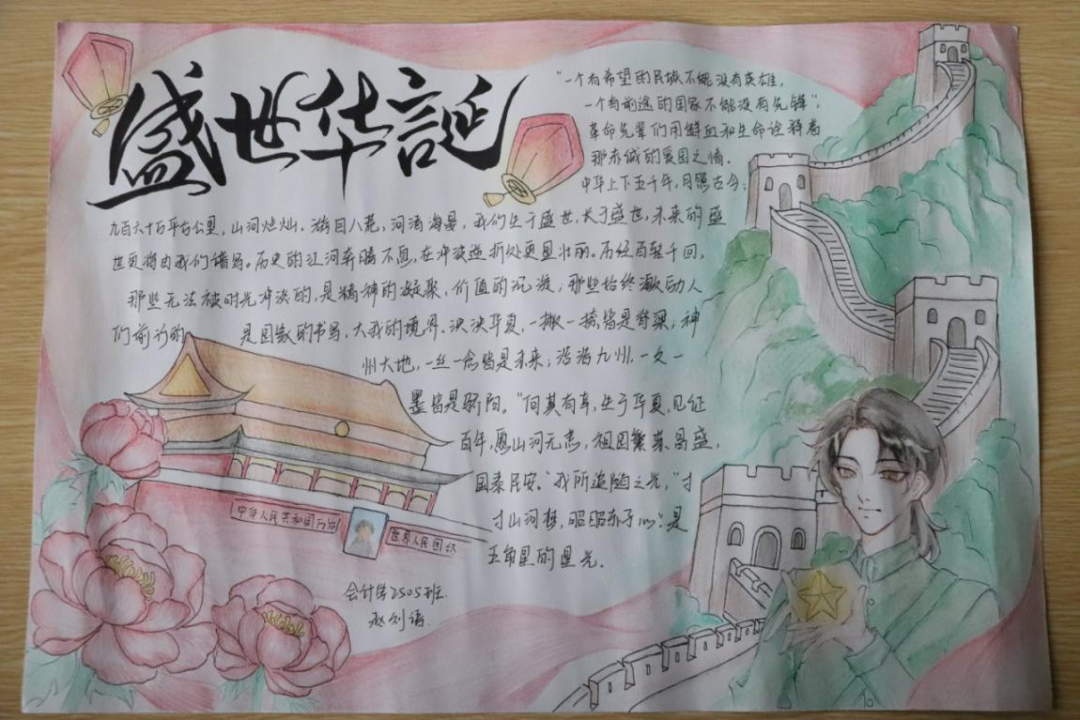 盛世华誕
"一个有希望的民族不能没有英雄,
一个有前途的国家不能没有先锋",
革命先辈们用鲜血和生命诠释着
那赤诚的爱国之情.
中华上下五千年,月照古今;
九百六十万平方公里,山河灿灿.游目八荒,河清海晏,我们生于盛世,长于盛世,未来的盛
世更将由我们谱写。历史的江河奔腾不息,在冲波逆折处更显壮丽。历经百转千回,
那些无法被时光冲淡的,是精神的凝聚,价值的沉淀;那些始终激励人
们前行的 是国家的书写,大我的境界.泱泱华夏,一撇一捺皆是脊梁;神
州大地,一丝一念皆是未来;浩浩九州,一文一
墨皆是骄阳。"何其有幸,生于华夏,见证
百年,愿山河无恙,祖国繁荣昌盛,
国泰民安."我所追随之光,"寸
寸山河梦,昭昭赤子心":是
五角星的星光.
中华人民共和国万岁
世界人民团结
会计第2505班
赵